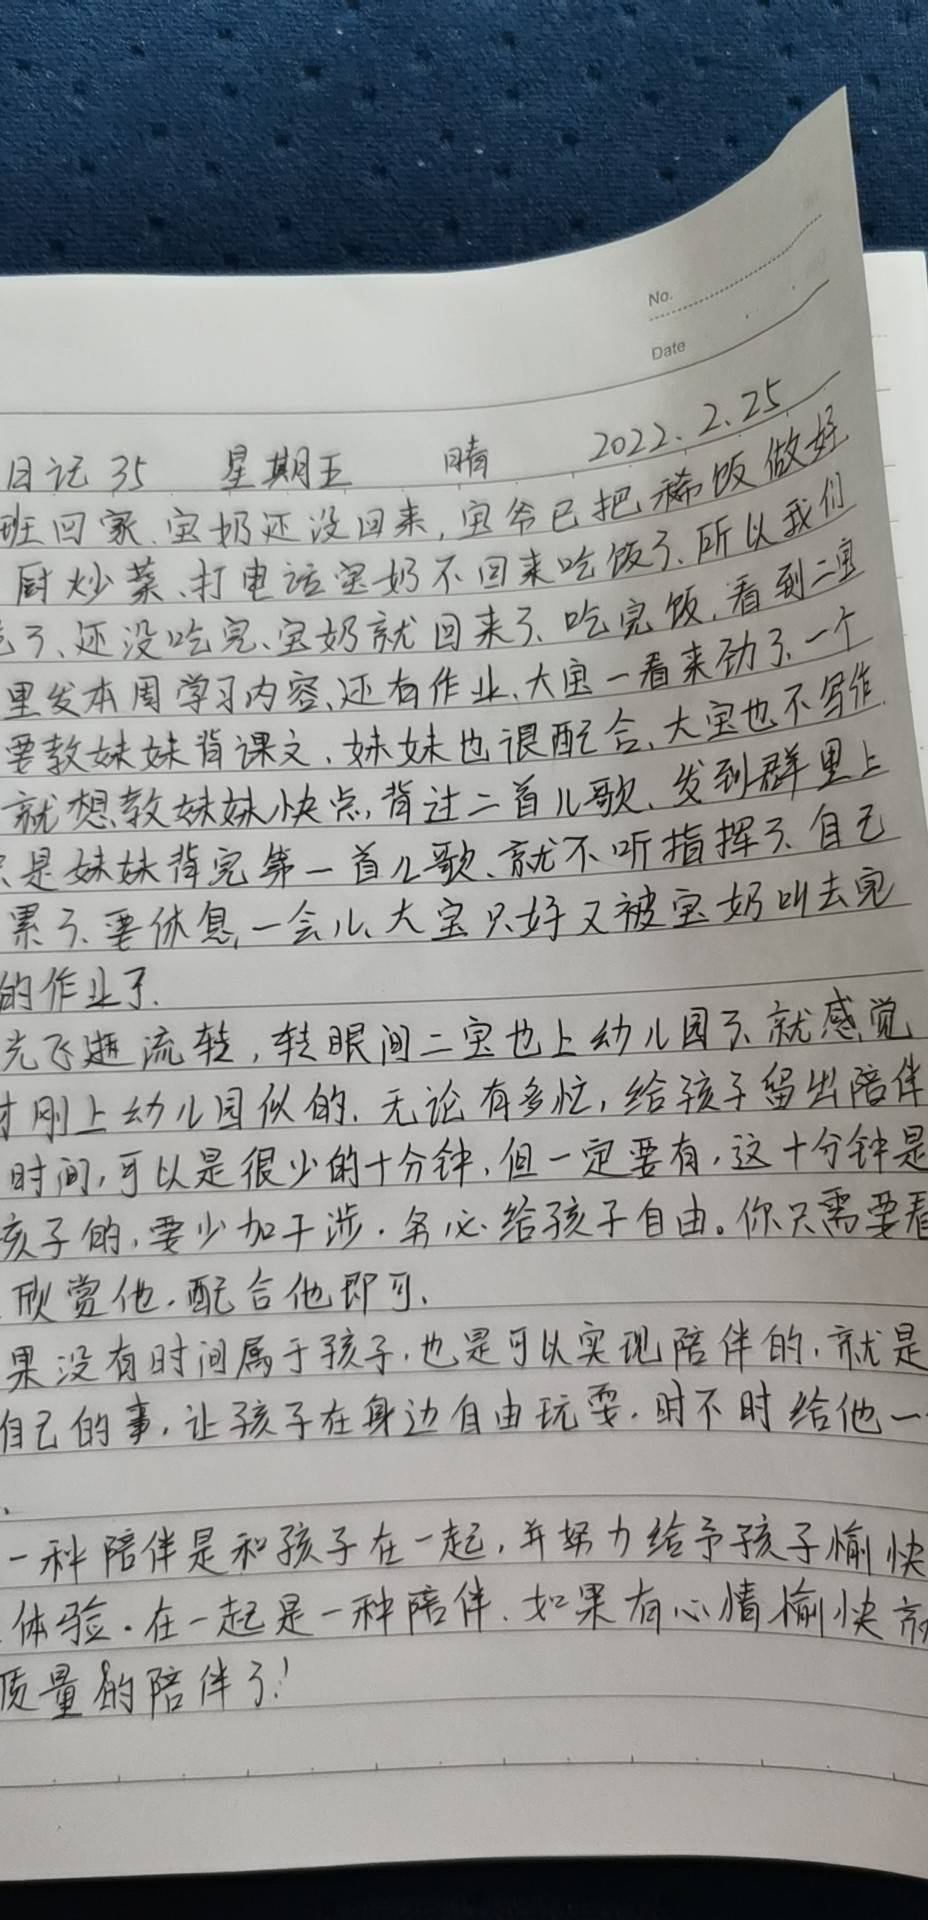 No.
Date
日记 35 星期五 晴 2022.2.25
班回家、宝奶还没回来,宝爷已把稀饭做好
厨炒菜、打电话宝奶不回来吃饭了、所以我们
了、还没吃完、宝奶就回来了、吃完饭,看到二宝
里发本周学习内容、还有作业、大宝一看来劲了、一个
要教妹妹背课文、妹妹也很配合、大宝也不写作
就想教妹妹快点,背过二首儿歌、发到群里上
是妹妹背完第一首儿歌、就不听指挥了、自己
累了、要休息,一会儿、大宝只好又被宝奶叫去完
的作业了.
光飞逝流转,转眼间二宝也上幼儿园了、就感觉
才刚上幼儿园似的,无论有多忙,给孩子留出陪伴
时间,可以是很少的十分钟,但一定要有,这十分钟是
孩子的,要少加干涉.务必给孩子自由。你只需要看
欣赏他.配合他即可、
果没有时间属于孩子,也是可以实现陪伴的,就是
自己的事,让孩子在身边自由玩耍.时不时给他一
、
一种陪伴是和孩子在一起,并努力给予孩子愉快
体验.在一起是一种陪伴、如果有心情愉快就
质量的陪伴了!